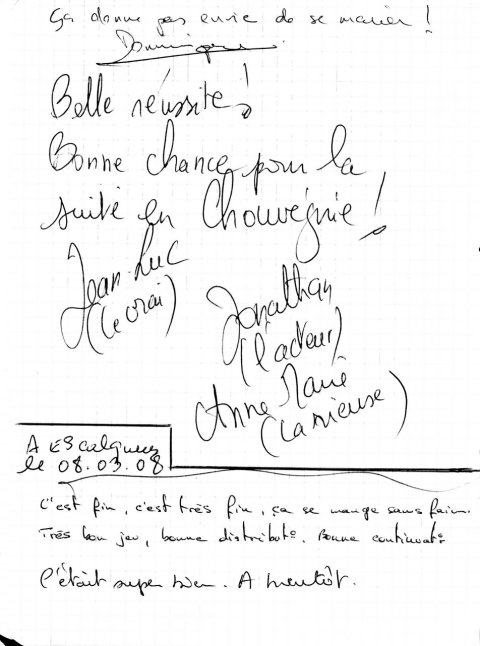 ça donne pas envie de se marier !
Dominique
Belle réussite !
Bonne chance pour la
suite en Chouvégnie !
Jean-Luc
(le vrai)
Jonathan
(l'acteur)
Anne Marie
(la mieuse)
A EScalquens
le 08.03.08
C'est fin, c'est très fin, ça se mange sans faim.
Très bon jeu, bonne distribut°. Bonne continuat°
C'était super bien. A bientôt.